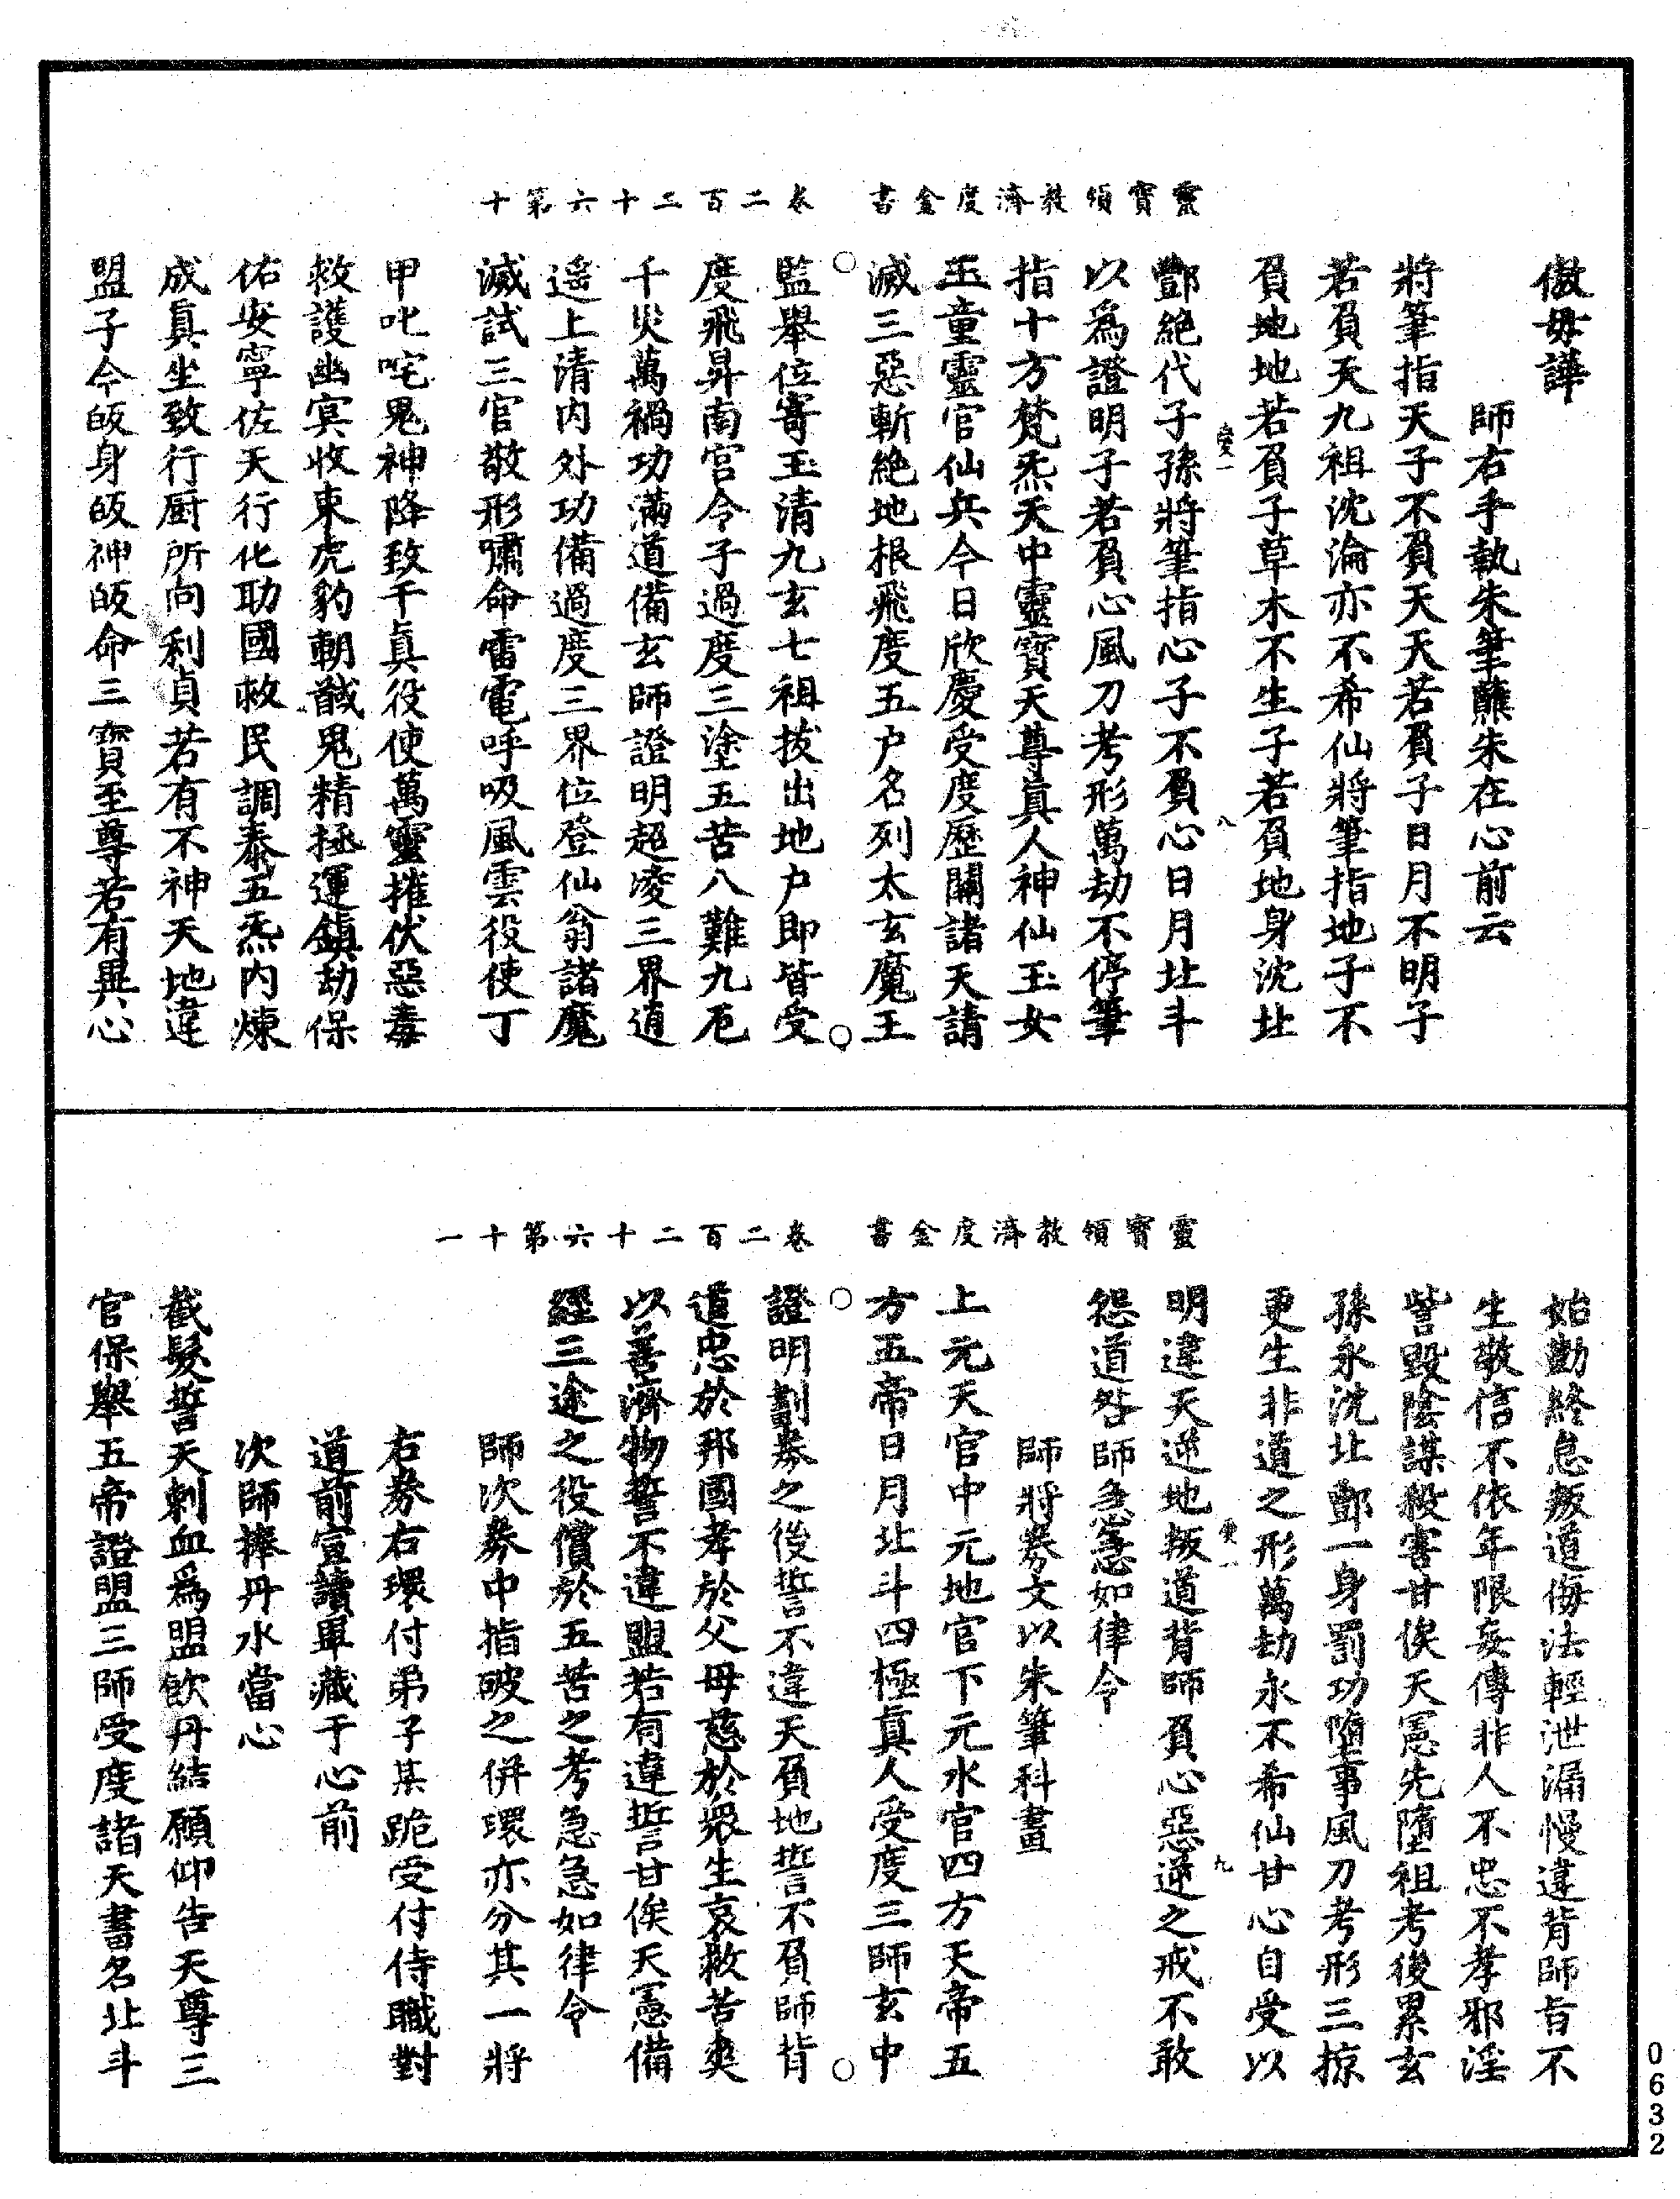 靈寶領教濟度金書　卷二百二十六第十
傲毋譁
師右手執朱筆蘸朱在心前云
將筆指天子不負天天若負子日月不明子
若負天九祖沈淪亦不希仙將筆指地子不
負地地若負子草木不生子若負地身沈北
酆絶代子孫將筆指心子不負心日月北斗
以爲證明子若負心風刀考形萬劫不停筆
指十方梵炁天中靈寶天尊眞人神仙玉女
玉童靈官仙兵今日欣慶受度歷關諸天請
滅三惡斬絶地根飛度五户名列太玄魔王
監舉位寄玉清九玄七祖拔出地户即皆受
度飛昇南宮令子過度三塗五苦八難九厄
千災萬禍功滿道備玄師證明超凌三界逍
遥上清内外功備過度三界位登仙翁諸魔
滅試三官敬形嘯命雷電呼吸風雲役使丁
甲叱咤鬼神降致千眞役使萬靈摧伏惡毒
救護幽冥收束虎豹朝馘鬼精拯運鎮劫保
佑安寧佐天行化助國救民調泰五炁内煉
成眞坐致行厨所向利貞若有不神天地違
盟子今皈身皈神皈命三寶至尊若有異心
靈寶領教濟度金書　卷二百二十六第十一
始勤終怠叛道侮法輕泄漏慢違背師旨不
生敬信不依年限妄傳非人不忠不孝邪淫
訾毀陰謀殺害甘俟天憲先墮祖考後累玄
孫永沈北酆一身罰功墮事風刀考形三掠
更生非道之形萬劫永不希仙甘心自受以
明違天逆地叛道背師負心惡逆之戒不敢
怨道咎師急急如律令
師將券文以朱筆科畫
上元天官中元地官下元水官四方天帝五
方五帝日月北斗四極眞人受度三師玄中
證明劃券之後誓不違天負地誓不負師背
道忠於邦國孝於父母慈於衆生哀救苦爽
以善濟物誓不違盟若有違誓甘俟天憲備
經三途之役償於五苦之考急急如律令
師次券中指破之併環亦分其一將
右券右環付弟子某跪受付侍職對
道前宣讀畢藏于心前
次師捧丹水當心
截髮誓天刺血爲盟飮丹結願仰告天尊三
官保舉五帝證盟三師受度諸天書名北斗
0632